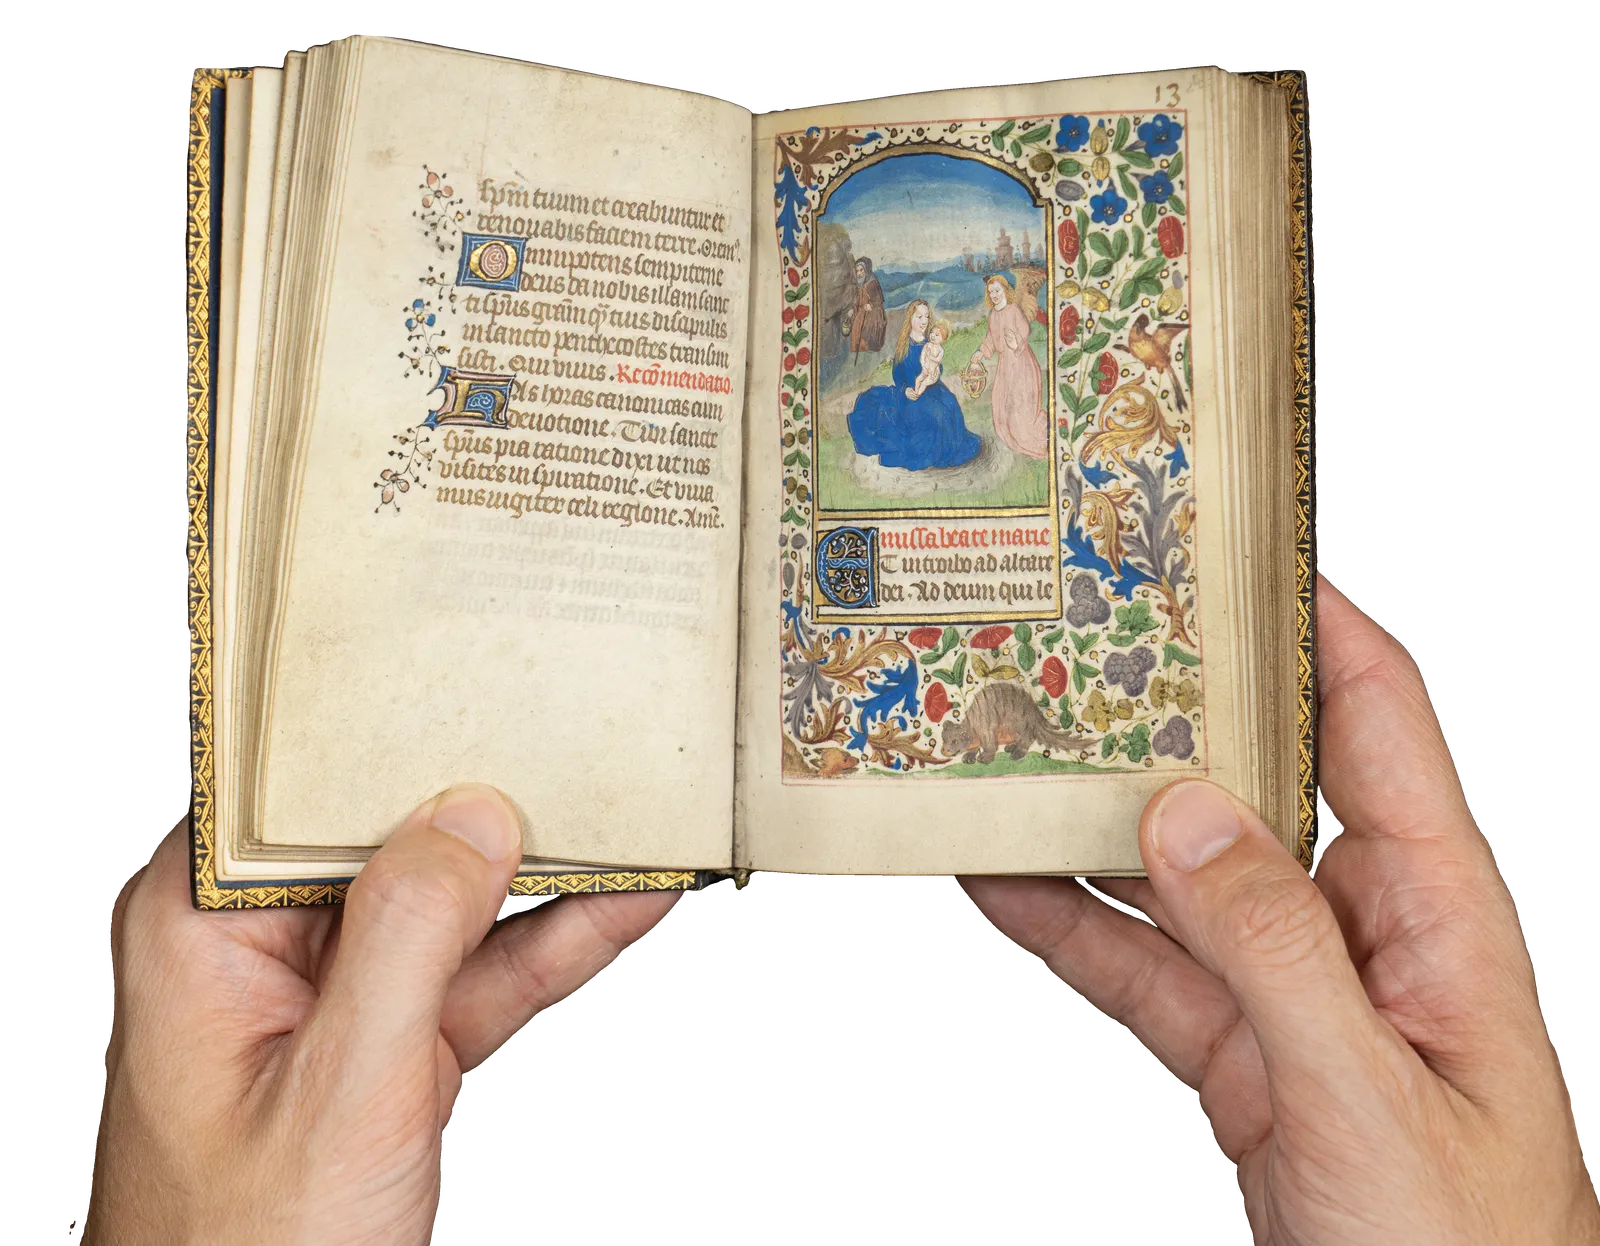 sp̄m tuum et creabuntur et
renovabis faciem terre. Orem⁹.
Omnipotens sempiterne
deus da nobis illam sanc
ti sp̄us gr̄am q̄ tuis discipulis
in sancto penthecostes transmi
sisti. Qui vivis. Recōmendatio.
Has horas canonicas cum
devotione. Tibi sancte
sp̄us pia ratione dixi ut nos
visites inspiratione. Et viva
mus iugiter celi regione. Amē.
13
missa beate marie
Et introibo ad altare
dei. Ad deum qui le